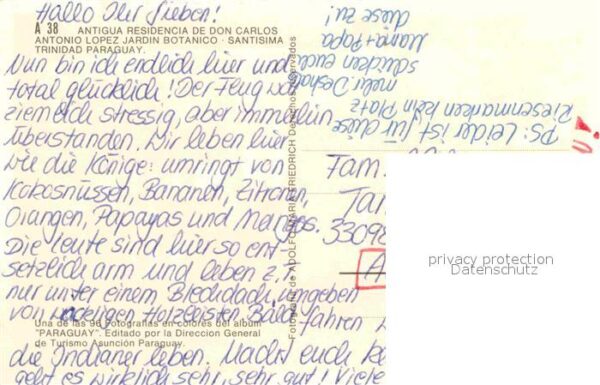 Hallo Ihr Lieben!
A 38 ANTIGUA RESIDENCIA DE DON CARLOS
ANTONIO LOPEZ JARDIN BOTANICO - SANTISIMA
TRINIDAD PARAGUAY.
Nun bin ich endlich hier und
total glücklich! Der Flug war
ziemlich stressig, aber immerhin
überstanden. Wir leben hier
wie die Könige: umringt von
Kokosnüssen, Bananen, Zitronen,
Orangen, Papayas und Mangos.
Die Leute sind hier so ent-
setzlich arm und leben z.T.
nur unter einem Blechdach, umgeben
von wackeligen Holzleisten. Bald fahren
die Indianer leben. Macht euch
geht es wirklich sehr, sehr gut! Viele
Una de las 96 Fotografias en colores del album
"PARAGUAY". Editado por la Direccion General
de Turismo Asunción Paraguay.
Fotografie de ADOLFO MARIA FRIEDRICH Derechos reservados
PS: Leider ist für diese
Riesenmarken kein Platz
mehr. Deshalb
schicken euch
Mama + Papa
diese zu!
Fam.
33098
privacy protection
Datenschutz